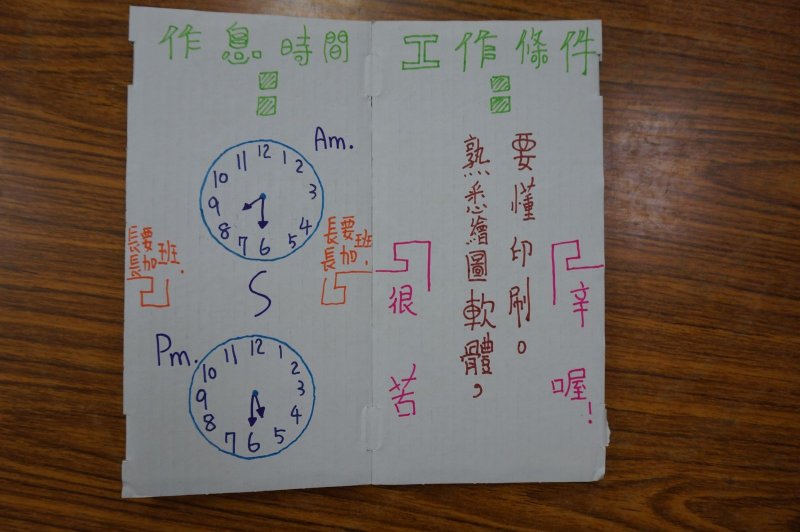 作息時間:
Am.
12
1
2
3
4
5
6
7
8
9
10
11
長長要加班!
長長要加班!
S
Pm.
12
1
2
3
4
5
6
7
8
9
10
11
工作條件:
熟悉繪圖軟體,
要懂印刷。
很辛
苦喔!